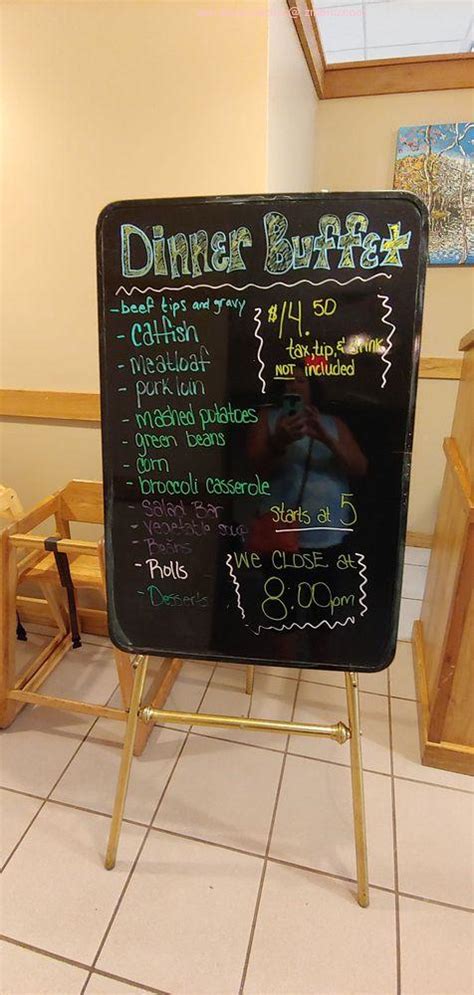 Dinner Buffet
- beef tips and gravy
- Catfish
- Meatloaf
- pork loin
- mashed potatoes
- green beans
- corn
- broccoli casserole
- Salad Bar
- Vegetable soup
- Beans
- Rolls
- Desserts
$14.50
tax, tip, & drink
NOT included
Starts at 5
WE CLOSE at
8:00pm